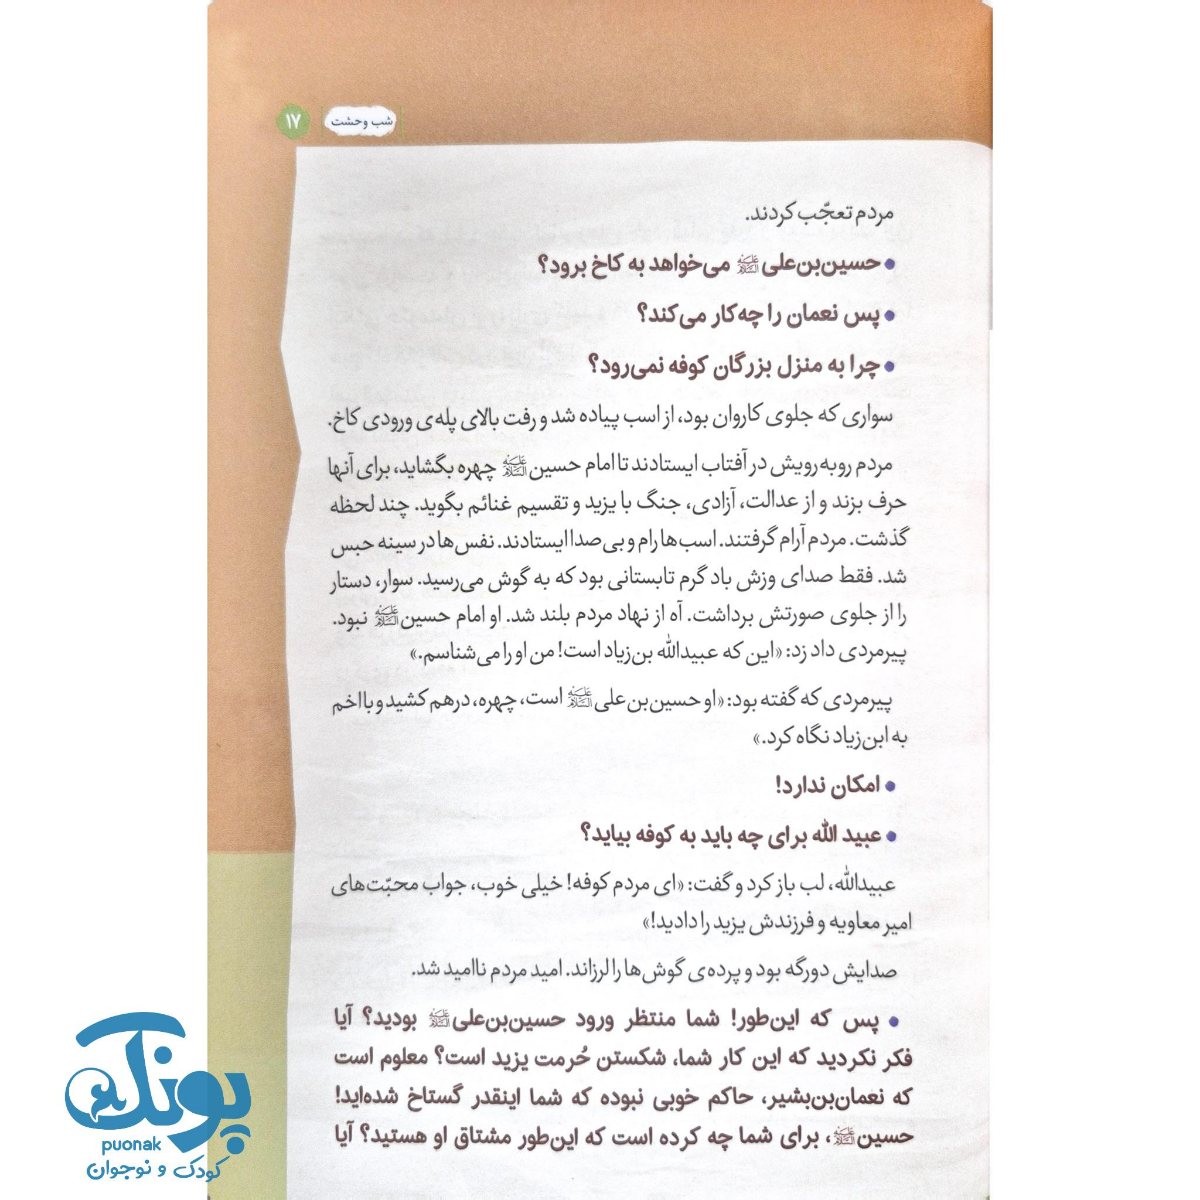 شب وحشت ۱۷
مردم تعجّب کردند.
• حسین‌بن‌علی علیه‌السلام می‌خواهد به کاخ برود؟
• پس نعمان را چه‌کار می‌کند؟
• چرا به منزل بزرگان کوفه نمی‌رود؟
سواری که جلوی کاروان بود، از اسب پیاده شد و رفت بالای پله‌ی ورودی کاخ.
مردم روبه‌رویش در آفتاب ایستادند تا امام حسین علیه‌السلام چهره بگشاید، برای آنها
حرف بزند و از عدالت، آزادی، جنگ با یزید و تقسیم غنائم بگوید. چند لحظه
گذشت. مردم آرام گرفتند. اسب‌ها رام و بی‌صدا ایستادند. نفس‌ها در سینه حبس
شد. فقط صدای وزش باد گرم تابستانی بود که به گوش می‌رسید. سوار، دستار
را از جلوی صورتش برداشت. آه از نهاد مردم بلند شد. او امام حسین علیه‌السلام نبود.
پیرمردی داد زد: «این که عبیدالله بن‌زیاد است! من او را می‌شناسم.»
پیرمردی که گفته بود: «او حسین‌بن‌علی علیه‌السلام است، چهره، درهم کشید و با اخم
به ابن‌زیاد نگاه کرد.»
• امکان ندارد!
• عبید الله برای چه باید به کوفه بیاید؟
عبیدالله، لب باز کرد و گفت: «ای مردم کوفه! خیلی خوب، جواب محبّت‌های
امیر معاویه و فرزندش یزید را دادید!»
صدایش دورگه بود و پرده‌ی گوش‌ها را لرزاند. امید مردم ناامید شد.
• پس که این‌طور! شما منتظر ورود حسین‌بن‌علی علیه‌السلام بودید؟ آیا
فکر نکردید که این کار شما، شکستن حُرمت یزید است؟ معلوم است
که نعمان‌بن‌بشیر، حاکم خوبی نبوده که شما اینقدر گستاخ شده‌اید!
حسین علیه‌السلام، برای شما چه کرده است که این‌طور مشتاق او هستید؟ آیا
پونک
puonak
کودک و نوجوان